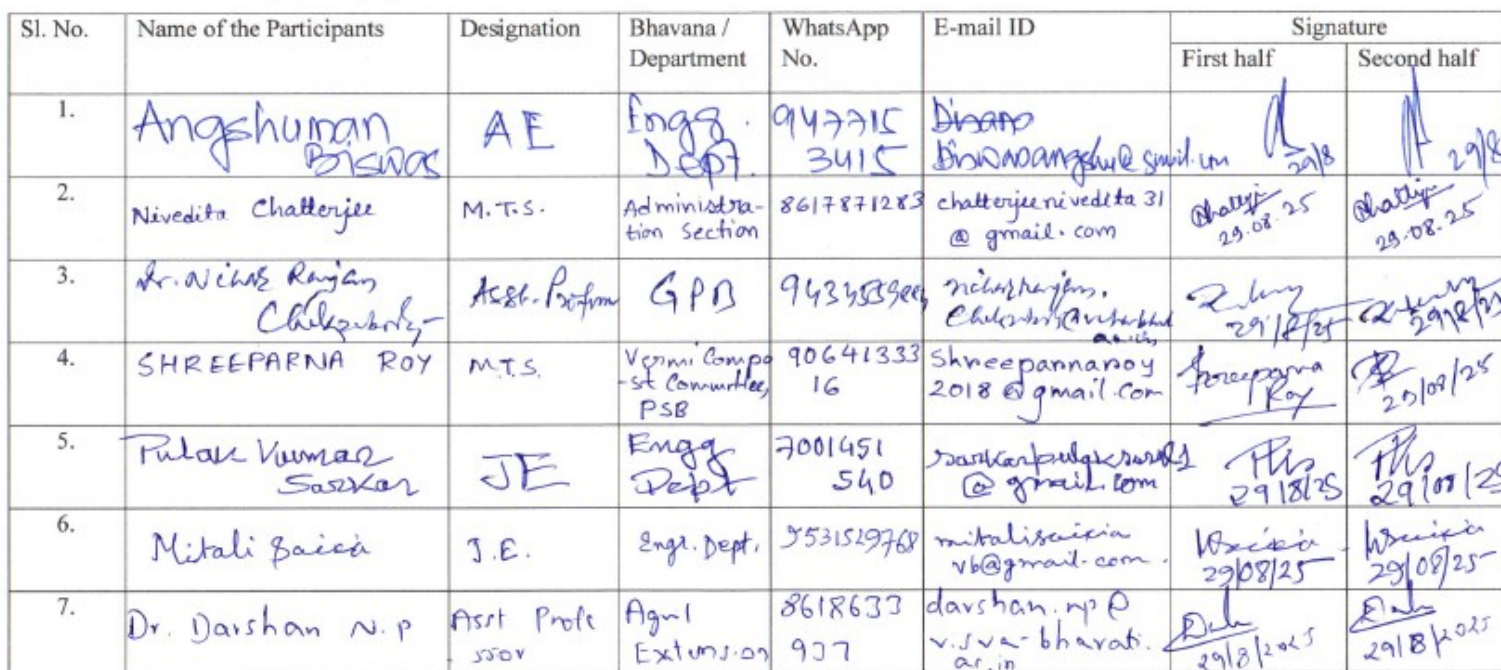 Sl. No. Name of the Participants Designation Bhavana / Department WhatsApp No. E-mail ID Signature
First half Second half
1. Angshuman Biswas AE Engg. Dept. 947715 3415 @gmail.com 29/8 29/8
2. Nivedita Chatterjee M.T.S. Administra-tion Section 8617871283 chatterjeenivedita31 @gmail.com 29.08.25 29.08.25
3. Dr. Nihar Ranjan Chakraborty Asst. GPB 29/8/25 29/8/25
4. SHREEPARNA ROY M.T.S. Vermi Compo-st Committee, PSB 90641333 16 Shreeparnaroy 2018@gmail.com Shreeparna Roy 29/08/25
5. Pulak Kumar Sarkar JE Engg Dept 7001451 540 @gmail.com 29/8/25 29/08/25
6. Mitali Saikia J.E. Engr. Dept. 9531529768 mitalisaikia vb@gmail.com. 29/08/25 29/08/25
7. Dr. Darshan N.P Asst Profe ssor Agril Extension 8618633 937 darshan.np@ visva-bharati. ac.in 29/8/2025 29/8/2025